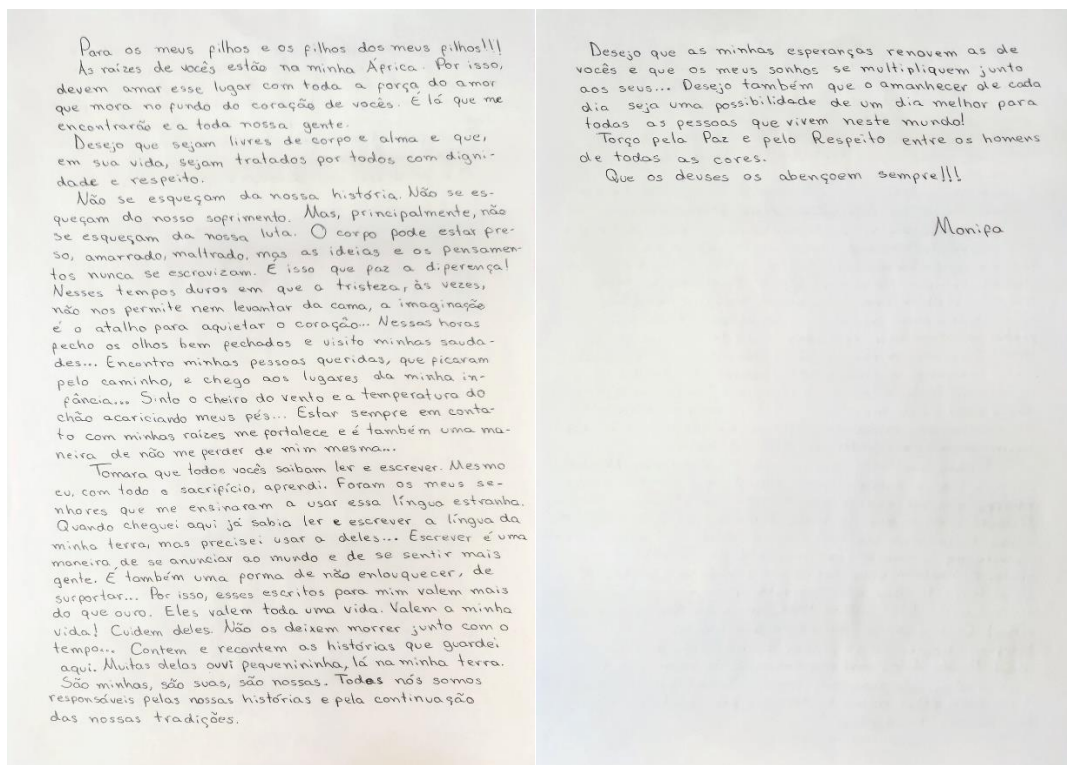 Para os meus filhos e os filhos dos meus filhos!!!
As raízes de vocês estão na minha África. Por isso,
devem amar esse lugar com toda a força do amor
que mora no fundo do coração de vocês. É lá que me
encontrarão e a toda nossa gente.
Desejo que sejam livres de corpo e alma e que,
em sua vida, sejam tratados por todos com digni-
dade e respeito.
Não se esqueçam da nossa história. Não se es-
queçam do nosso sofrimento. Mas, principalmente, não
se esqueçam da nossa luta. O corpo pode estar pre-
so, amarrado, maltrado, mas as ideias e os pensamen-
tos nunca se escravizam. É isso que faz a diferença!
Nesses tempos duros em que a tristeza, às vezes,
não nos permite nem levantar da cama, a imaginação
é o atalho para aquietar o coração... Nessas horas
fecho os olhos bem fechados e visito minhas sauda-
des... Encontro minhas pessoas queridas, que ficaram
pelo caminho, e chego aos lugares da minha in-
fância... Sinto o cheiro do vento e a temperatura do
chão acariciando meus pés... Estar sempre em conta-
to com minhas raízes me fortalece e é também uma ma-
neira de não me perder de mim mesma...
Tomara que todos vocês saibam ler e escrever. Mesmo
eu, com todo o sacrifício, aprendi. Foram os meus se-
nhores que me ensinaram a usar essa língua estranha.
Quando cheguei aqui já sabia ler e escrever a língua da
minha terra, mas precisei usar a deles... Escrever é uma
maneira de se anunciar ao mundo e de se sentir mais
gente. É também uma forma de não enlouquecer, de
surportar... Por isso, esses escritos para mim valem mais
do que ouro. Eles valem toda uma vida. Valem a minha
vida! Cuidem deles. Não os deixem morrer junto com o
tempo... Contem e recontem as histórias que guardei
aqui. Muitas delas ouvi pequenininha, lá na minha terra.
São minhas, são suas, são nossas. Todos nós somos
responsáveis pelas nossas histórias e pela continuação
das nossas tradições.
Desejo que as minhas esperanças renovem as de
vocês e que os meus sonhos se multipliquem junto
aos seus... Desejo também que o amanhecer de cada
dia seja uma possibilidade de um dia melhor para
todas as pessoas que vivem neste mundo!
Torço pela Paz e pelo Respeito entre os homens
de todas as cores.
Que os deuses os abençoem sempre!!!
Monifa